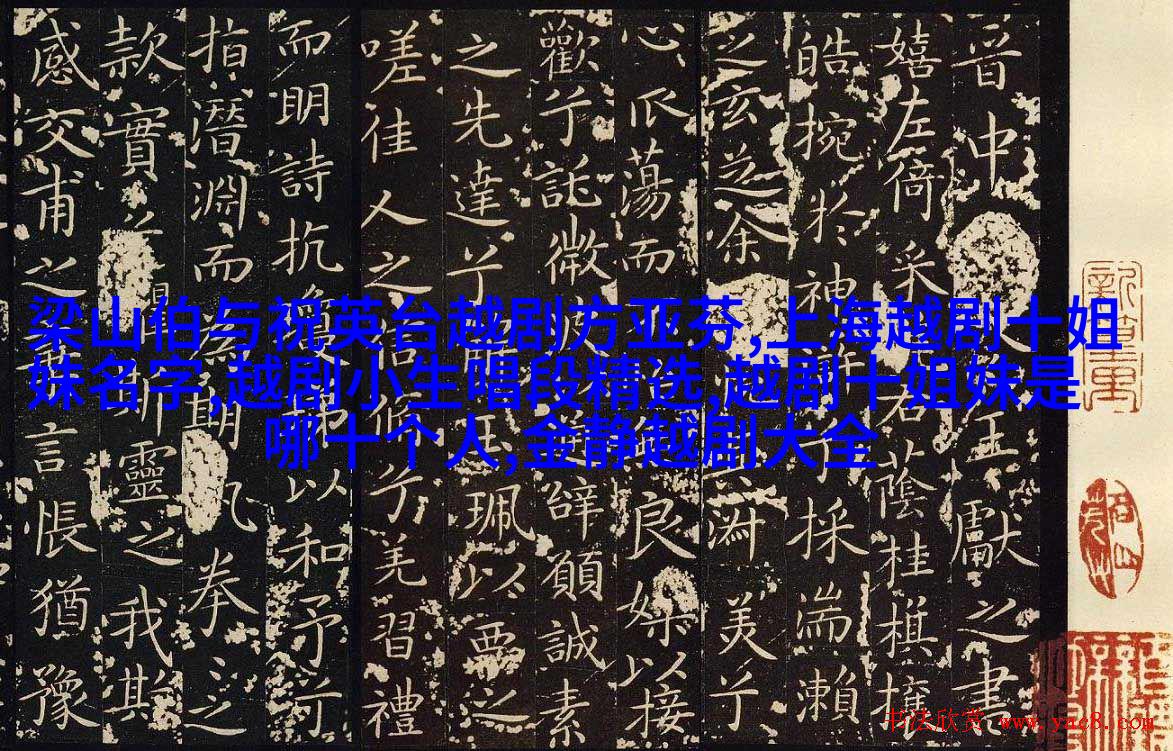 梁山伯与祝英台越剧方亚芬,上海越剧十姐
妹名字,越剧小生唱段精选,越剧十姐妹是
哪十个人,金静越剧大全
晋中王獻之書
嬉左倚采右蔭桂旗攘
皓捥於神滸兮採湍瀨
之玄芝余淑美兮
心蕩而良媒以接
歡兮託微波辭願誠素
之先達兮解玉珮以要之
嗟佳人之信脩兮羌習禮
而明詩抗瓊以和予兮
指潛淵而為期拳之
款實兮斯靈之我欺
感交甫之棄言悵猶豫
书法欣赏 www.yac8.com